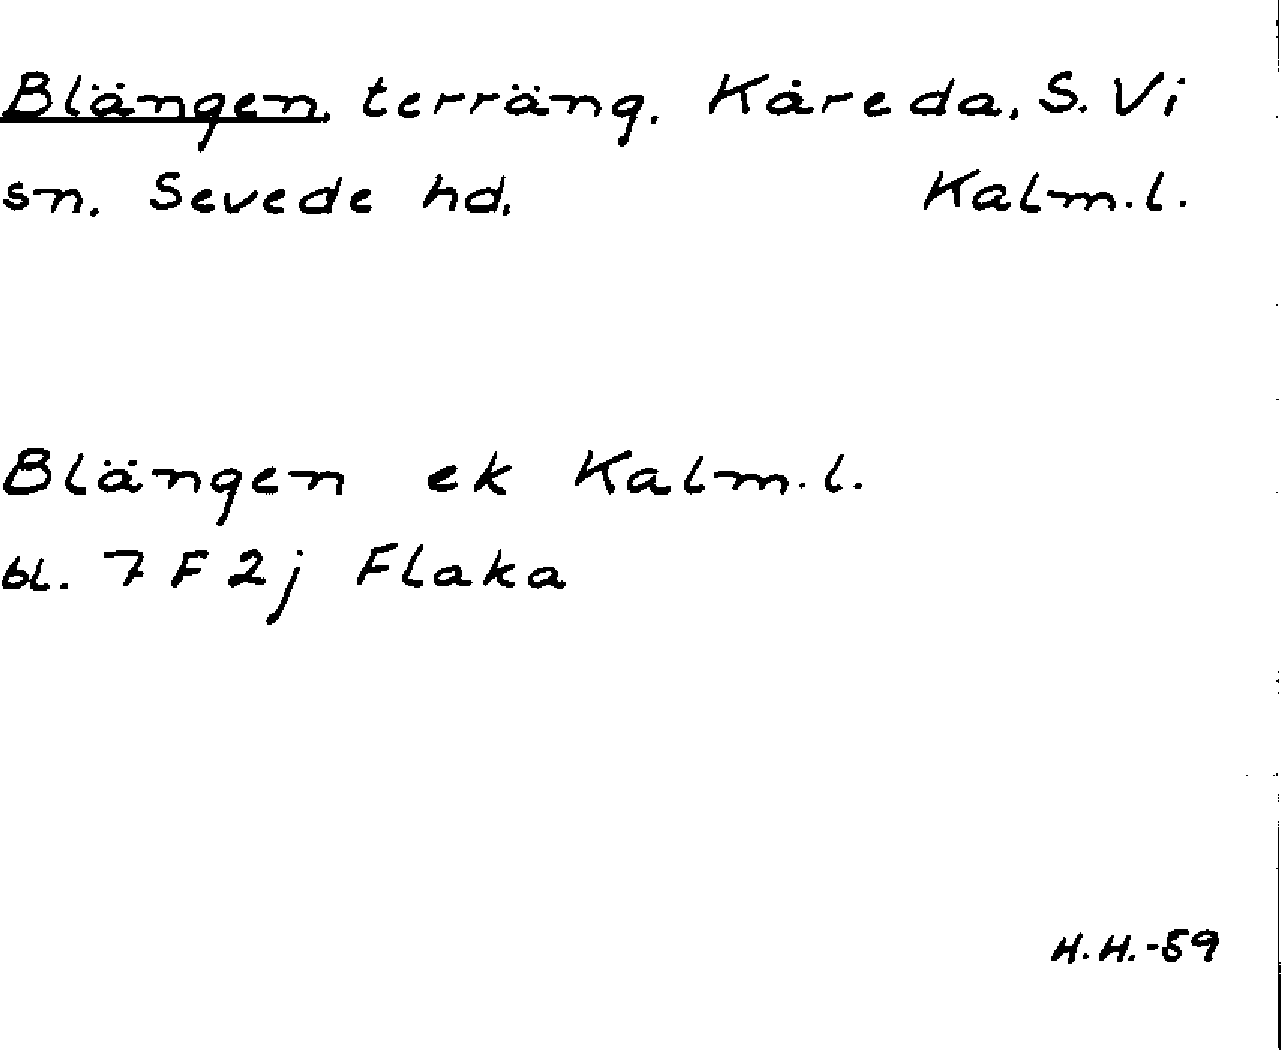 Blängen, terräng, Kåreda, S. Vi
sn, Sevede hd, Kalm.l.
Blängen ek Kalm.l.
bl. 7 F 2j Flaka
H.H.-59